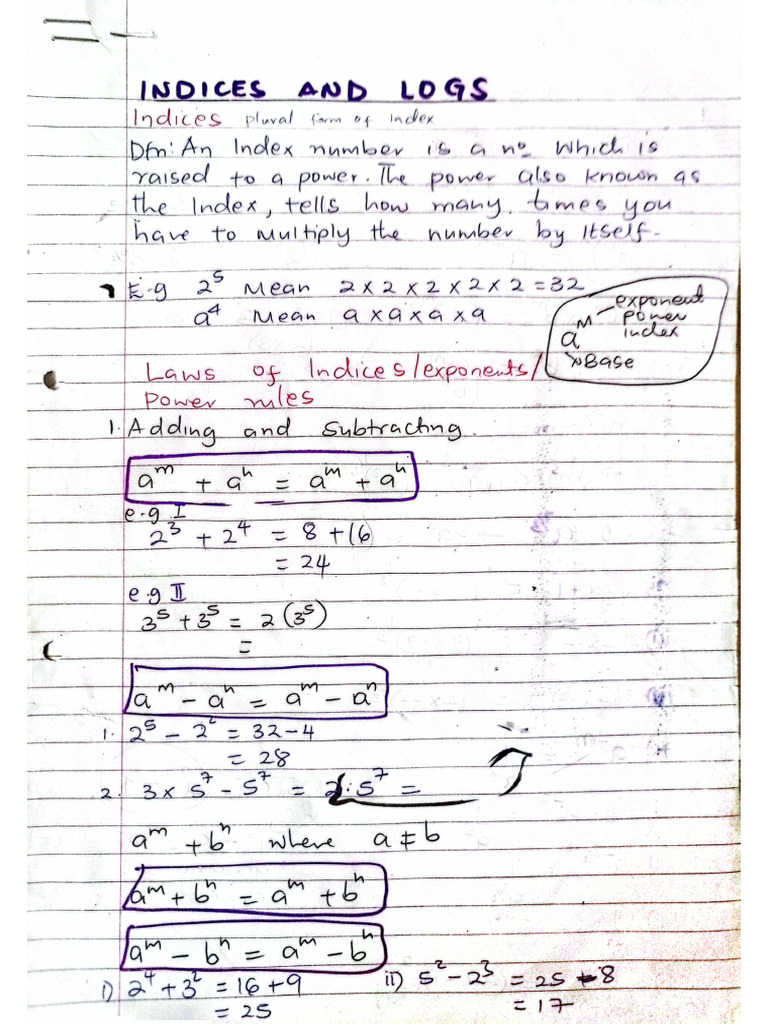 INDICES AND LOGS
Indices plural form of Index
Dfn: An Index number is a nº which is
raised to a power. The power also known as
the Index, tells how many times you
have to multiply the number by itself.
E.g 2⁵ Mean 2 x 2 x 2 x 2 x 2 = 32
a⁴ Mean a x a x a x a
aᴹ
exponent
power
index
Base
Laws of Indices/exponents/
Power rules
1. Adding and Subtracting.
aᵐ + aⁿ = aᵐ + aⁿ
e.g I
2³ + 2⁴ = 8 + 16
= 24
e.g II
3⁵ + 3⁵ = 2 (3⁵)
=
aᵐ - aⁿ = aᵐ - aⁿ
1. 2⁵ - 2² = 32 - 4
= 28
2. 3 x 5⁷ - 5⁷ = 2 · 5⁷ =
aᵐ + bⁿ where a ≠ b
aᵐ + bⁿ = aᵐ + bⁿ
aᵐ - bⁿ = aᵐ - bⁿ
i) 2⁴ + 3² = 16 + 9 ii) 5² - 2³ = 25 - 8
= 25 = 17